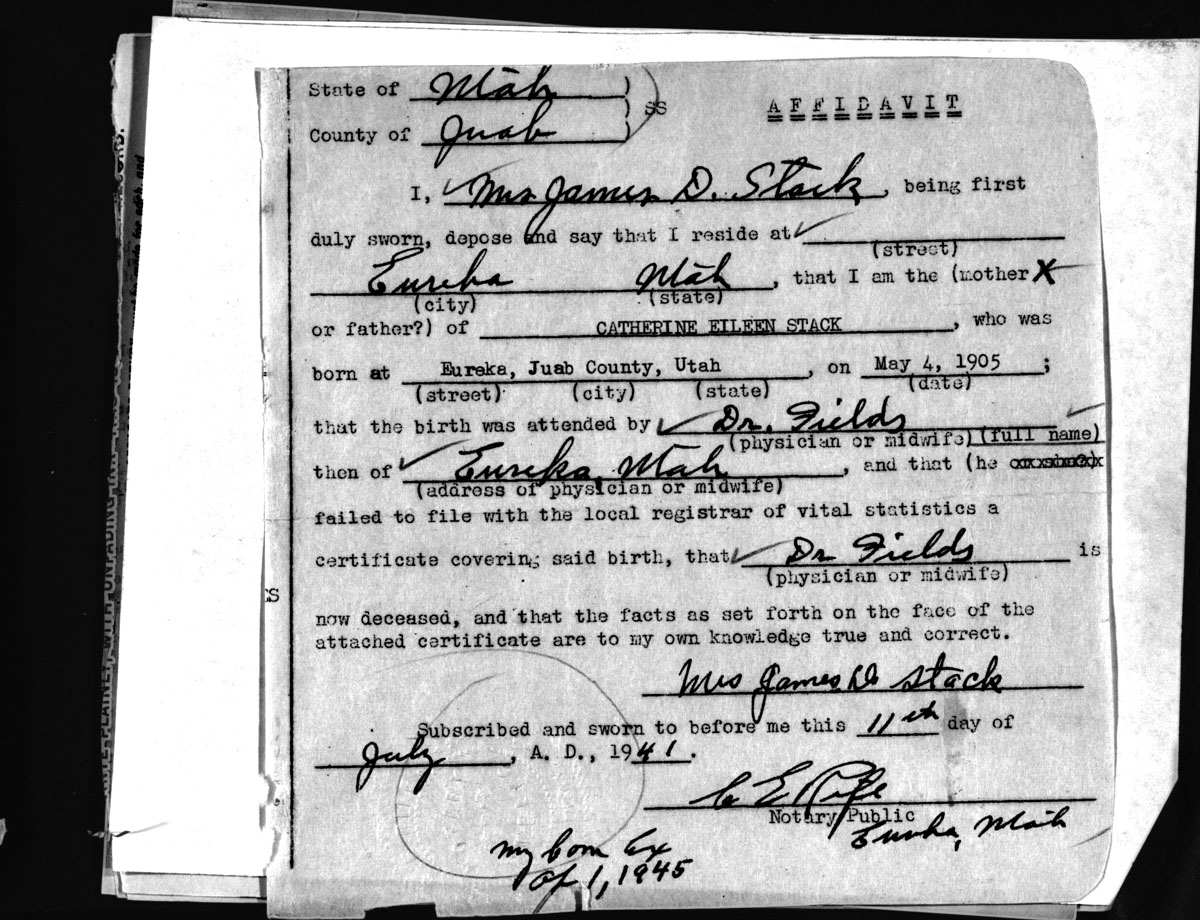 State of Utah )
) SS
AFFIDAVIT
County of Juab )
I, Mrs James D. Stack, being first
duly sworn, depose and say that I reside at
(street)
Eureka Utah, that I am the (mother X
(city) (state)
or father?) of CATHERINE EILEEN STACK, who was
born at Eureka, Juab County, Utah, on May 4, 1905;
(street) (city) (state) (date)
that the birth was attended by Dr. Fields
(physician or midwife) (full name)
then of Eureka, Utah, and that (he
(address of physician or midwife)
failed to file with the local registrar of vital statistics a
certificate covering said birth, that Dr Fields is
(physician or midwife)
now deceased, and that the facts as set forth on the face of the
attached certificate are to my own knowledge true and correct.
Mrs James D Stack
Subscribed and sworn to before me this 11th day of
July, A. D., 1941.
C E Rife
Notary Public
Eureka, Utah
my Com Ex
Ap 1, 1945